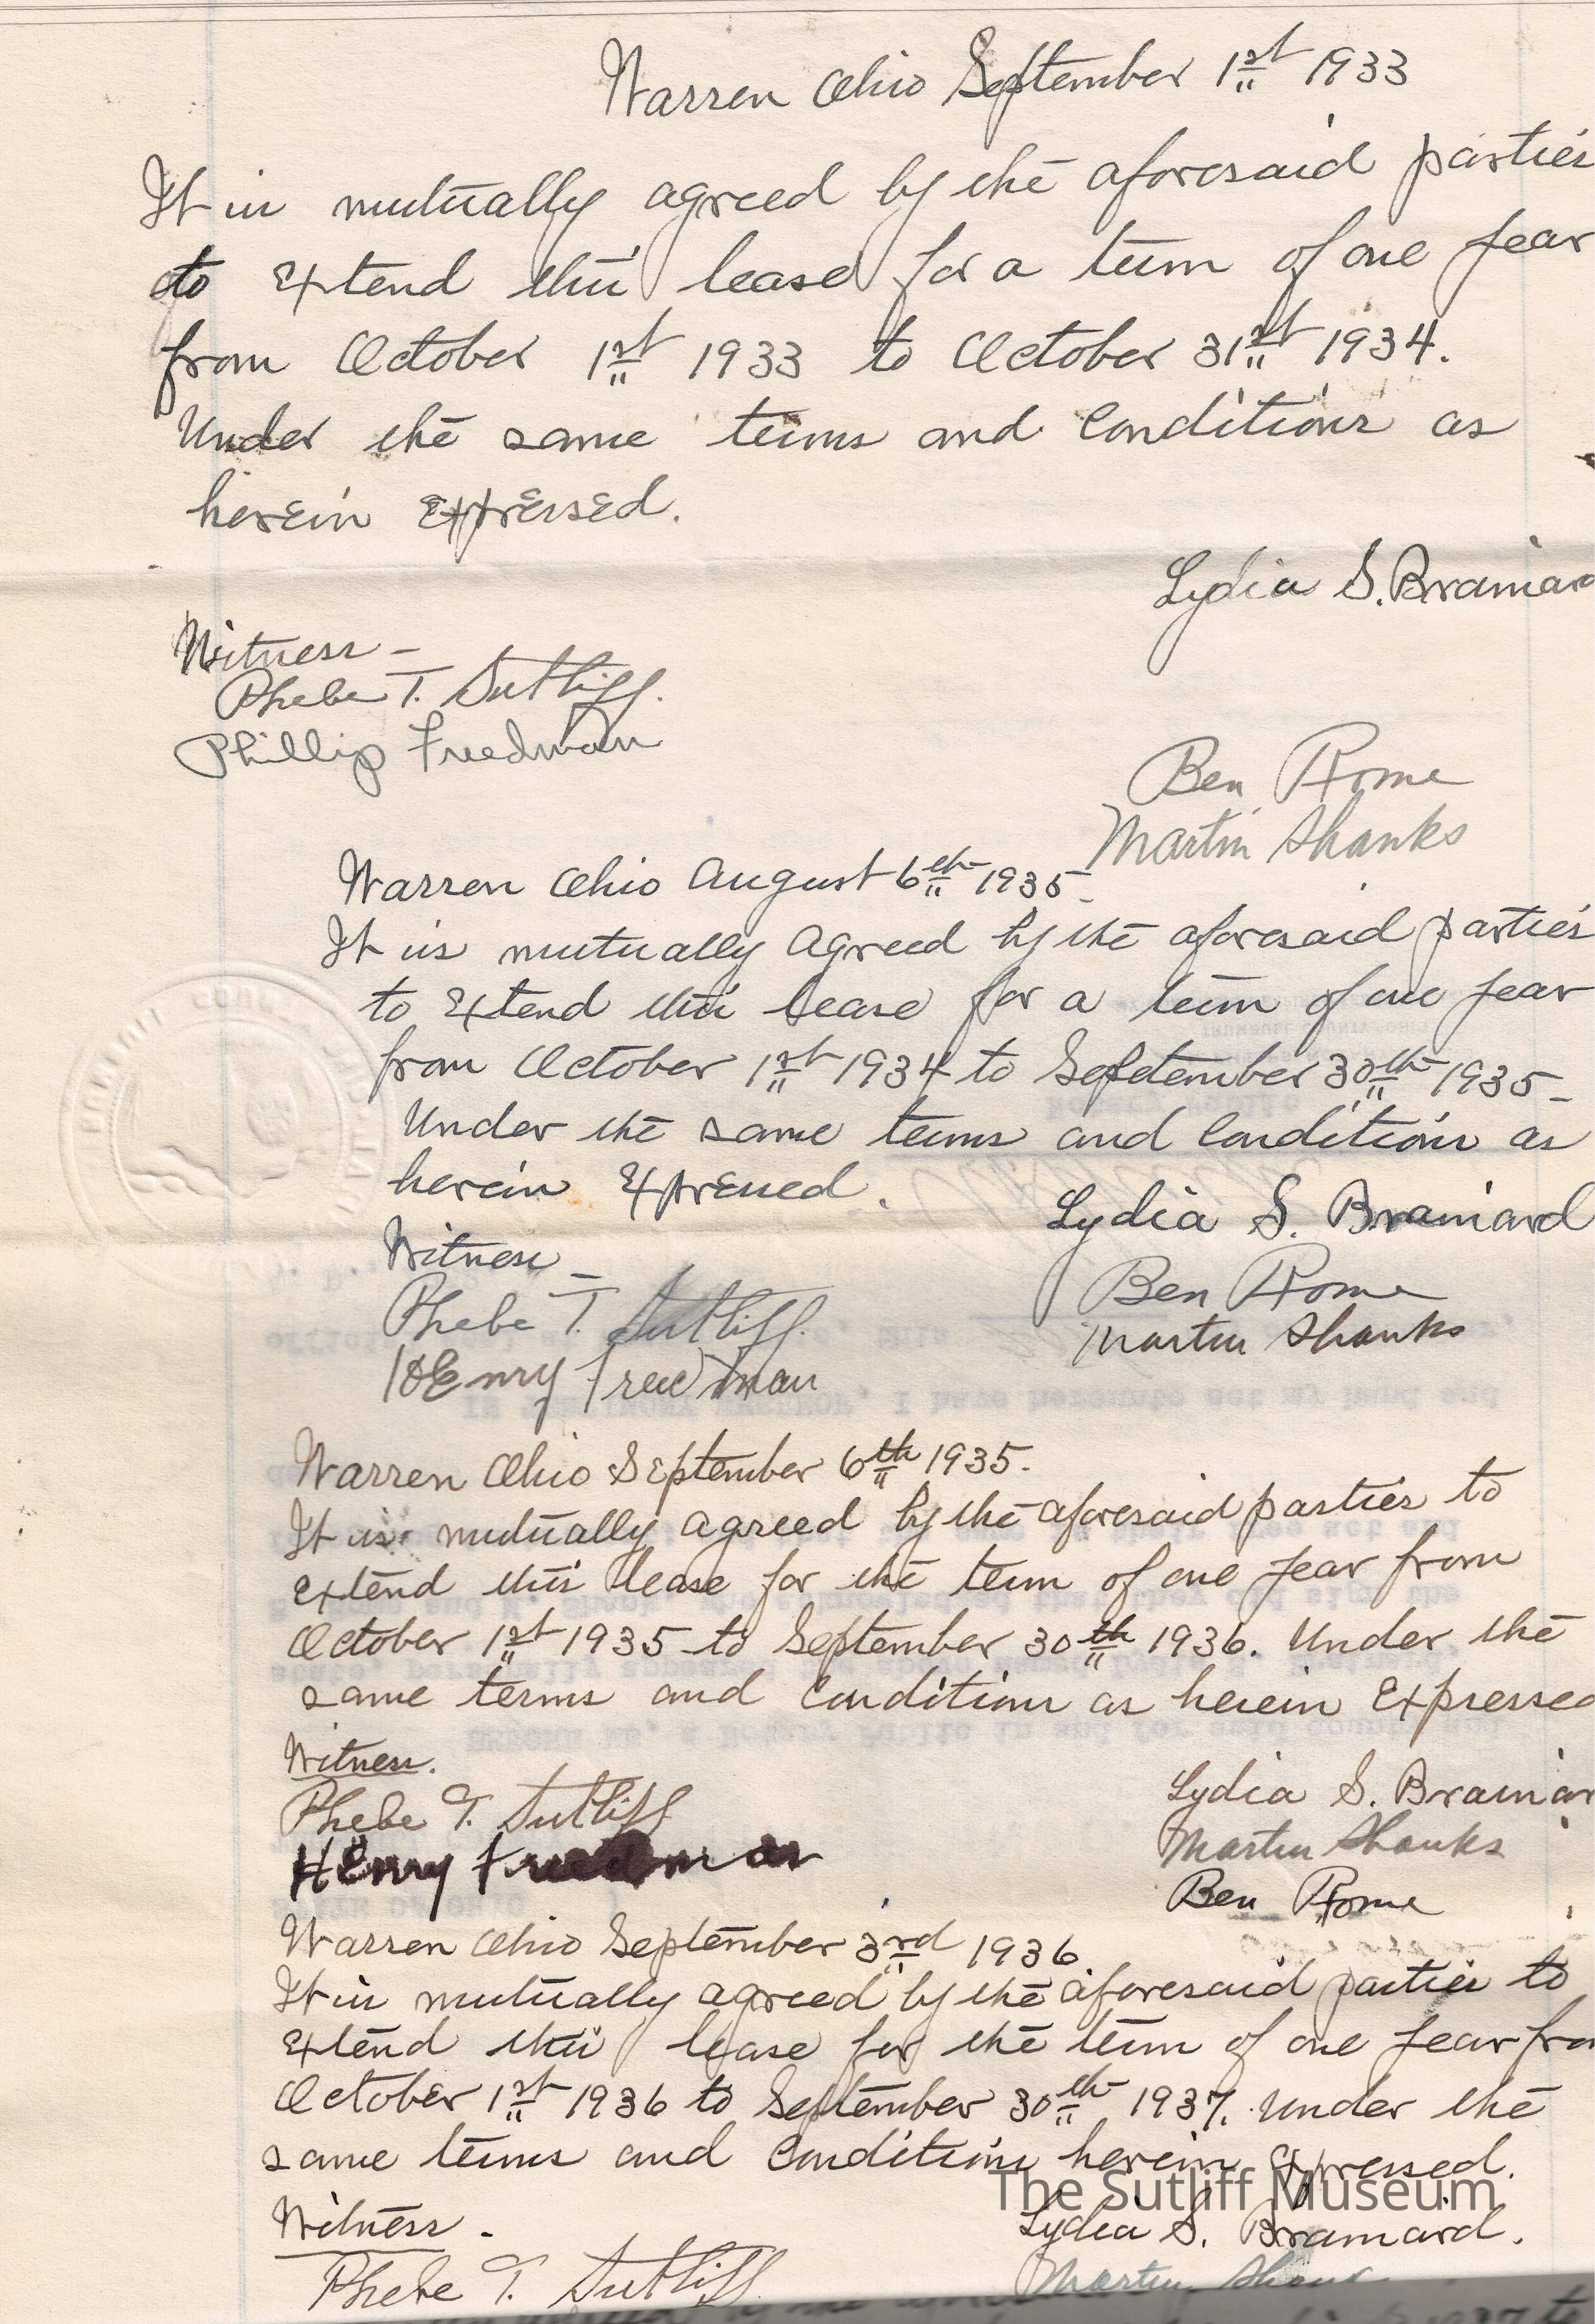 Warren Ohio September 1st 1933
It is mutually agreed by the aforesaid parties
to extend this lease for a term of one year
from October 1st 1933 to October 31st 1934.
Under the same terms and conditions as
herein expressed.
Lydia S. Brainar
Witness –
Phebe T. Sutliff.
Phillip Freedman
Ben Rome
Martin Shanks
Warren Ohio August 6th 1935
It is mutually agreed by the aforesaid parties
to extend this lease for a term of one year
from October 1st 1934 to September 30th 1935–
Under the same terms and conditions as
herein expressed.
Lydia S. Brainard
Witness –
Phebe T. Sutliff.
Henry Freedman
Ben Rome
Martin Shanks
Warren Ohio September 6th 1935.
It is mutually agreed by the aforesaid parties to
extend this lease for the term of one year from
October 1st 1935 to September 30th 1936. Under the
same terms and conditions as herein expressed
Witness.
Phebe T. Sutliff
Henry Freedman
Lydia S. Brainar
Martin Shanks
Ben Rome
Warren Ohio September 3rd 1936.
It is mutually agreed by the aforesaid parties to
extend this lease for the term of one year from
October 1st 1936 to September 30th 1937. Under the
same terms and conditions herein expressed.
The Sutliff Museum
Witness.
Lydia S. Brainard.
Phebe T. Sutliff
Martin Shank